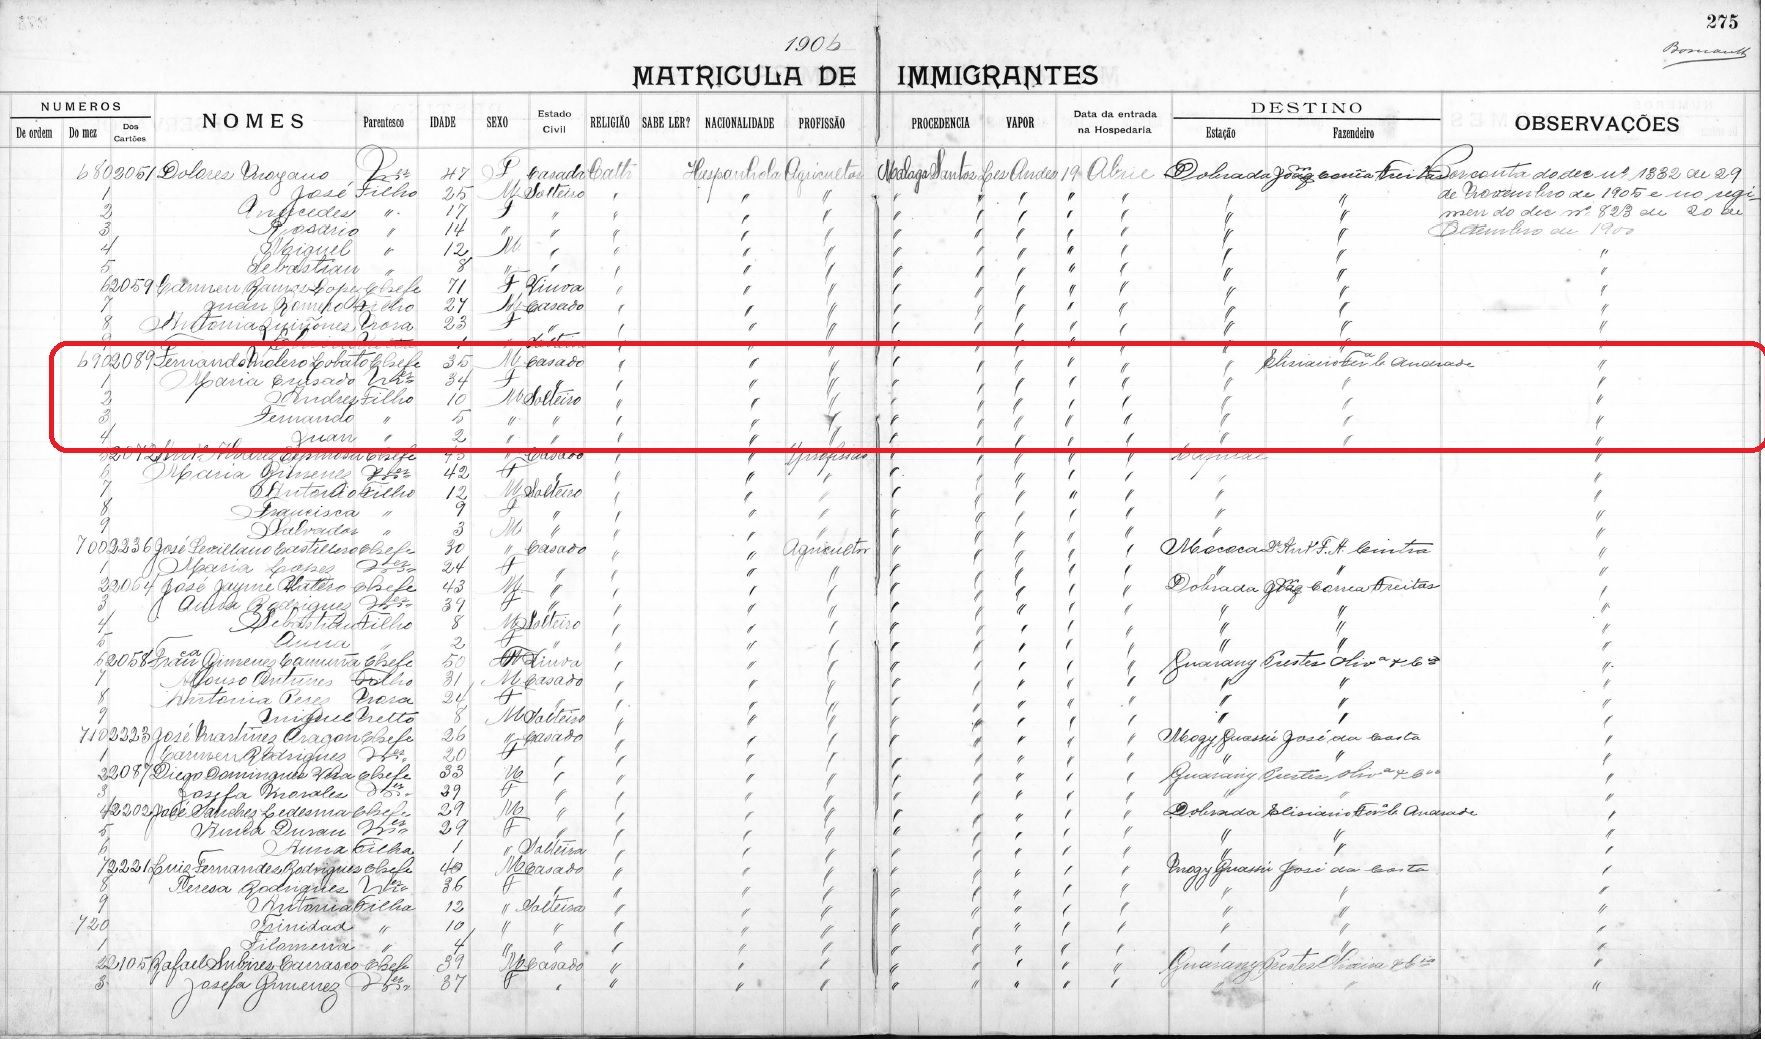 275
1906
MATRICULA DE IMMIGRANTES
NUMEROS
De ordem Do mez Dos Cartões NOMES Parentesco IDADE SEXO Estado Civil RELIGIÃO SABE LER? NACIONALIDADE PROFISSÃO PROCEDENCIA VAPOR Data da entrada na Hospedaria DESTINO Estação Fazendeiro OBSERVAÇÕES
680 2051 Dolores Moyano 47 F Casada Cath Hespanhola Agricultor Malaga Santos Les Andes 19 Abril Dobrada Joaq Correa Freitas Por conta do dec nº 1332 de 29
1 José Filho 25 M Solteiro " " " " " " " " " de Novembro de 1905 e no regi-
2 " 17 F " " " " " " " " " " men do dec nº 823 de 20 de
3 Rosario " 14 " " " " " " " " " " " Setembro de 1900
4 Miguel " 12 M " " " " " " " " " " "
5 Sebastian " 8 " " " " " " " " " " " "
6 2059 Carmen Ramos Lopes Chefe 71 F Viuva " " " " " " " " " "
7 Juan Romero Filho 27 M Casado " " " " " " " " " "
8 Antonia Quiñones Nora 23 F " " " " " " " " " " "
9 1 Solteira
690 2089 Fernando Molero Lobato Chefe 35 M Casado " " " " " " " " Elisiario Ferª C Andrade "
1 Maria Crusado Mer 34 F " " " " " " " " " " "
2 Andres Filho 10 M Solteiro " " " " " " " " " "
3 Fernando " 5 " " " " " " " " " " " "
4 Juan " 2 " " " " " " " " " " " "
5 2072 Chefe 45 " Casado " " " " " " " "
6 Maria Gimenes 42 F " " " " " " " " "
7 Antonio Filho 12 M Solteiro " " " " " " " " "
8 Francisca " 9 F " " " " " " " " " "
9 Salvador " 3 M " " " " " " " " " "
700 2236 José Sevillano Castilloso Chefe 30 " Casado " " Agricultor " " " " Mococa Dr Antº F. A. Cintra "
1 Maria Lopes 24 F " " " " " " " " " " "
2 2064 José Jayme Matero Chefe 43 M " " " " " " " " Dobrada Joaq Correa Freitas "
3 Anna Rodrigues 39 F " " " " " " " " " " "
4 Sebastian Filho 8 M Solteiro " " " " " " " " " "
5 Anna " 2 F " " " " " " " " " " "
6 2058 Franca Gimenes Chefe 50 Viuva " " " " " " " Guarany Prestes Olivª & Cia "
7 Antunes Filho 31 M Casado " " " " " " " " " "
8 Antonia Peres Nora 24 F " " " " " " " " " " "
9 Miguel Netto 8 M Solteiro " " " " " " " " " "
710 2223 José Martines Aragon Chefe 26 " Casado " " " " " " " Mogy Guassú José da Costa "
1 Carmen Rodrigues 20 F " " " " " " " " " " "
2 2087 Diego Domingues Vera Chefe 33 M " " " " " " " " Guarany Prestes Olivª & Cia "
3 Josefa Morales 39 F " " " " " " " " " " "
4 2202 José Sanches Ledesma Chefe 29 M " " " " " " " " Dobrada Elisiario Ferª C Andrade "
5 Anna Duran 29 F " " " " " " " " " " "
6 Anna Filha 1 " Solteira " " " " " " " " " "
7 2221 Luiz Fernandes Rodrigues Chefe 40 M Casado " " " " " " " Mogy Guassú José da Costa "
8 Teresa Rodrigues 36 F " " " " " " " " " " "
9 Antonia Filha 12 " Solteira " " " " " " " " " "
720 Trinidad " 10 " " " " " " " " " " " "
1 Filomena " 4 " " " " " " " " " " " "
2 2105 Rafael Carrasco Chefe 39 M Casado " " " " " " " Guarany Prestes "
3 Josefa Gimenez 37 F " " " " " " " " " " "